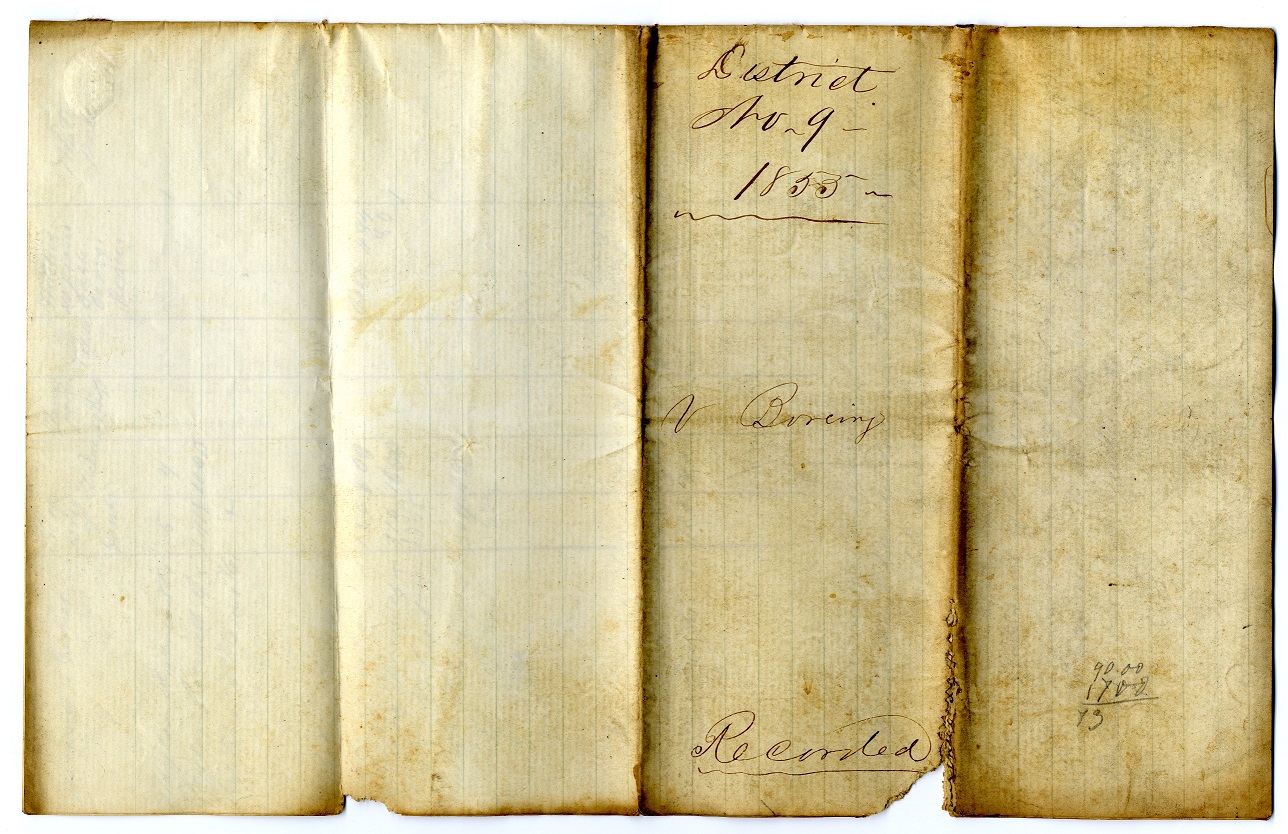 District
No. 9
1855
V Boreing
Recorded
90.00
1700
73